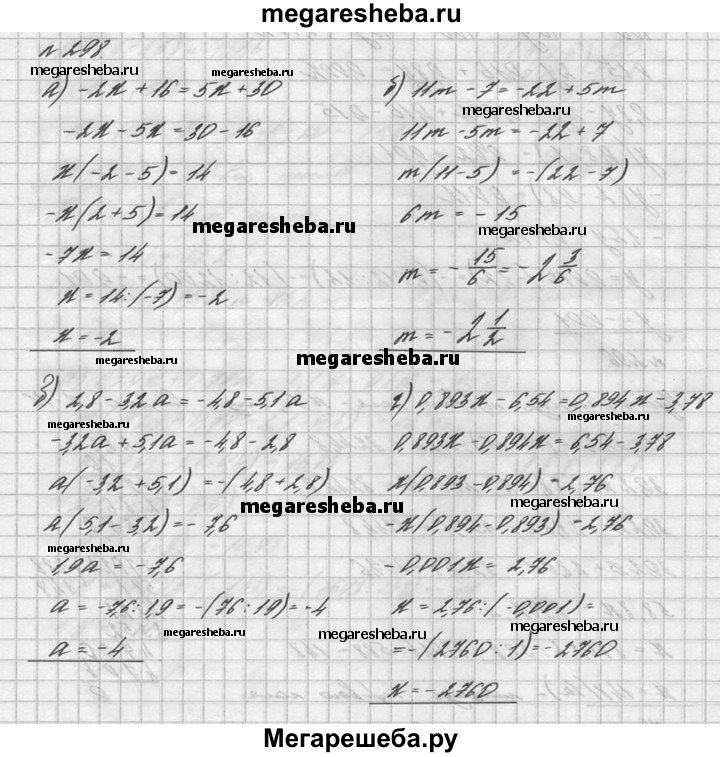 megaresheba.ru
№ 298
megaresheba.ru megaresheba.ru
а) -2x + 16 = 5x + 30
-2x - 5x = 30 - 16
x(-2 - 5) = 14
-x(2 + 5) = 14
megaresheba.ru
-7x = 14
x = 14 : (-7) = -2
x = -2
megaresheba.ru
б) 11m - 7 = -22 + 5m
megaresheba.ru
11m - 5m = -22 + 7
m(11 - 5) = -(22 - 7)
6m = -15
megaresheba.ru
m = -15/6 = -2 3/6
m = -2 1/2
megaresheba.ru
в) 2,8 - 3,2a = -4,8 - 5,1a
megaresheba.ru
-3,2a + 5,1a = -4,8 - 2,8
a(-3,2 + 5,1) = -(4,8 + 2,8)
megaresheba.ru
a(5,1 - 3,2) = -7,6
megaresheba.ru
1,9a = -7,6
a = -7,6 : 1,9 = -(76 : 19) = -4
megaresheba.ru
a = -4
г) 0,893x - 6,54 = 0,894x - 3,78
megaresheba.ru
0,893x - 0,894x = 6,54 - 3,78
x(0,893 - 0,894) = 2,76
megaresheba.ru
-x(0,894 - 0,893) = 2,76
-0,001x = 2,76
x = 2,76 : (-0,001) =
megaresheba.ru
megaresheba.ru
= -(2760 : 1) = -2760
x = -2760
megaresheba.ru
Мегарешеба.ру